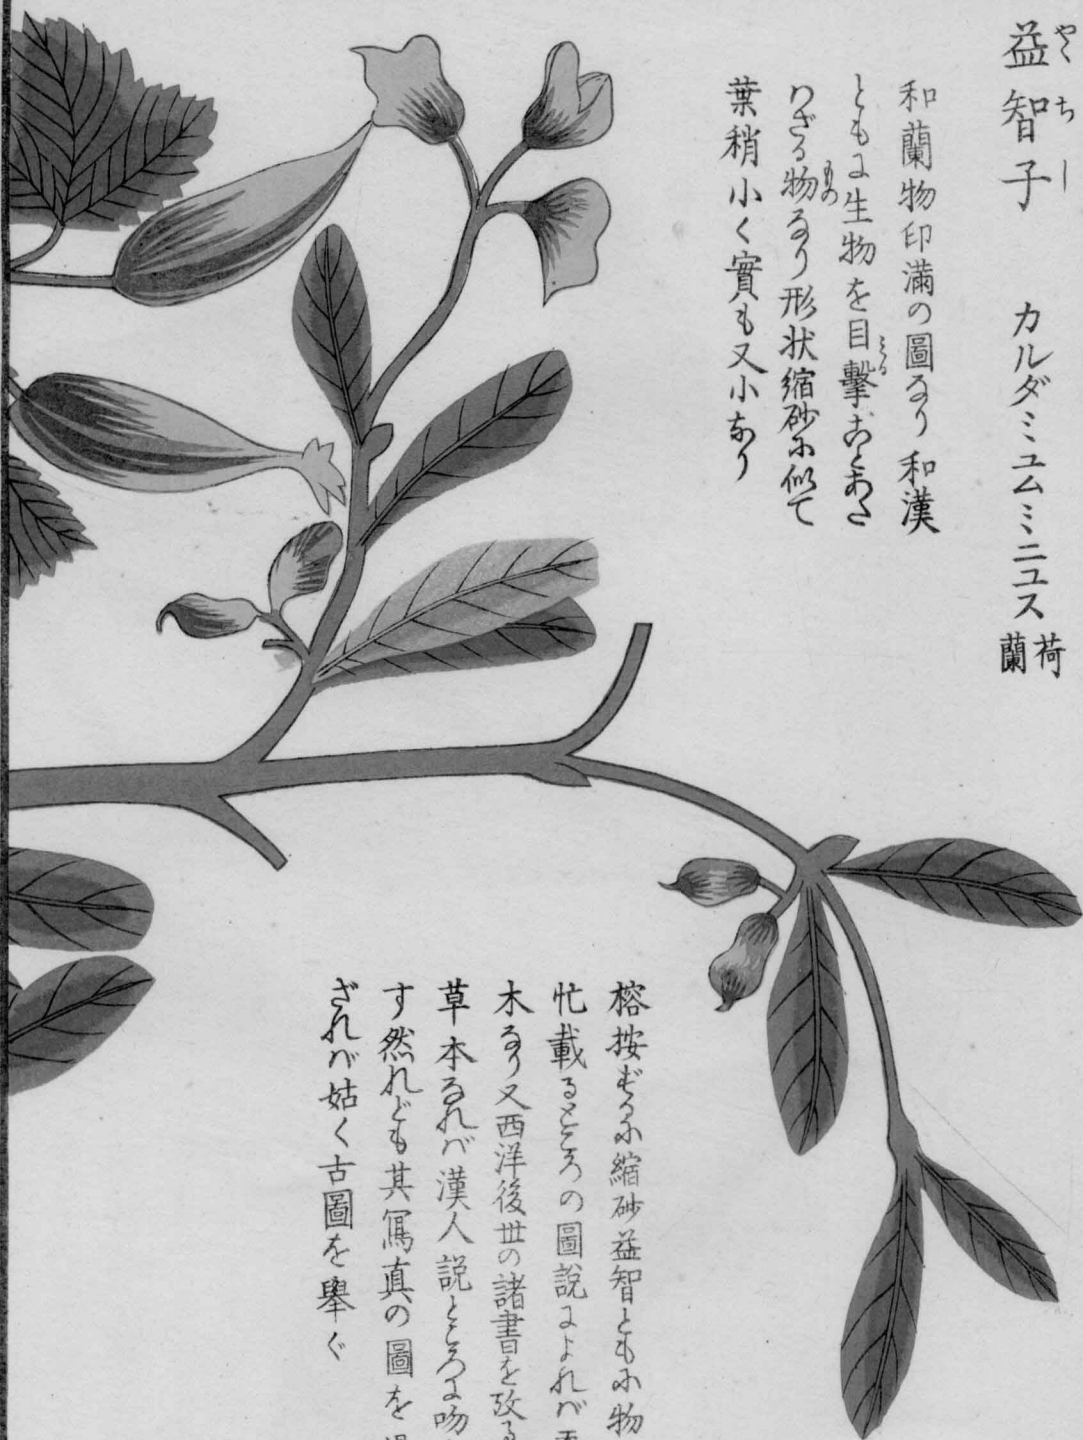 益智子 カルダミユムミニユス 荷蘭
やくちし
和蘭物印滿の圖なり 和漢
ともに生物を目撃ことあた
みる
わざる物なり形状縮砂に似て
もの
葉稍小く實も又小なり
榕按ずるに縮砂益智ともに物
忙載るところの圖說によれバ
木なり又西洋後世の諸書を攷る
草本なれバ漢人說ところに吻
す然れども其冩真の圖を
ざれバ姑く古圖を舉ぐ